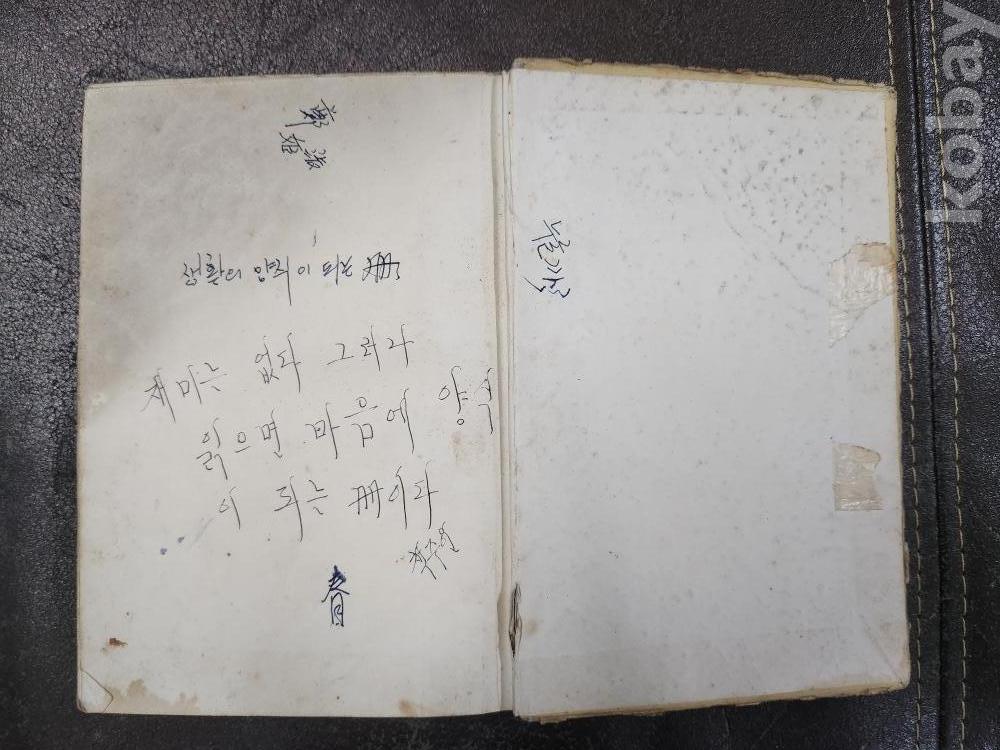 생활의 양식이 되는 冊
재미는 없다 그러나
읽으면 마음에 양식
이 되는 冊이다
春
kobay